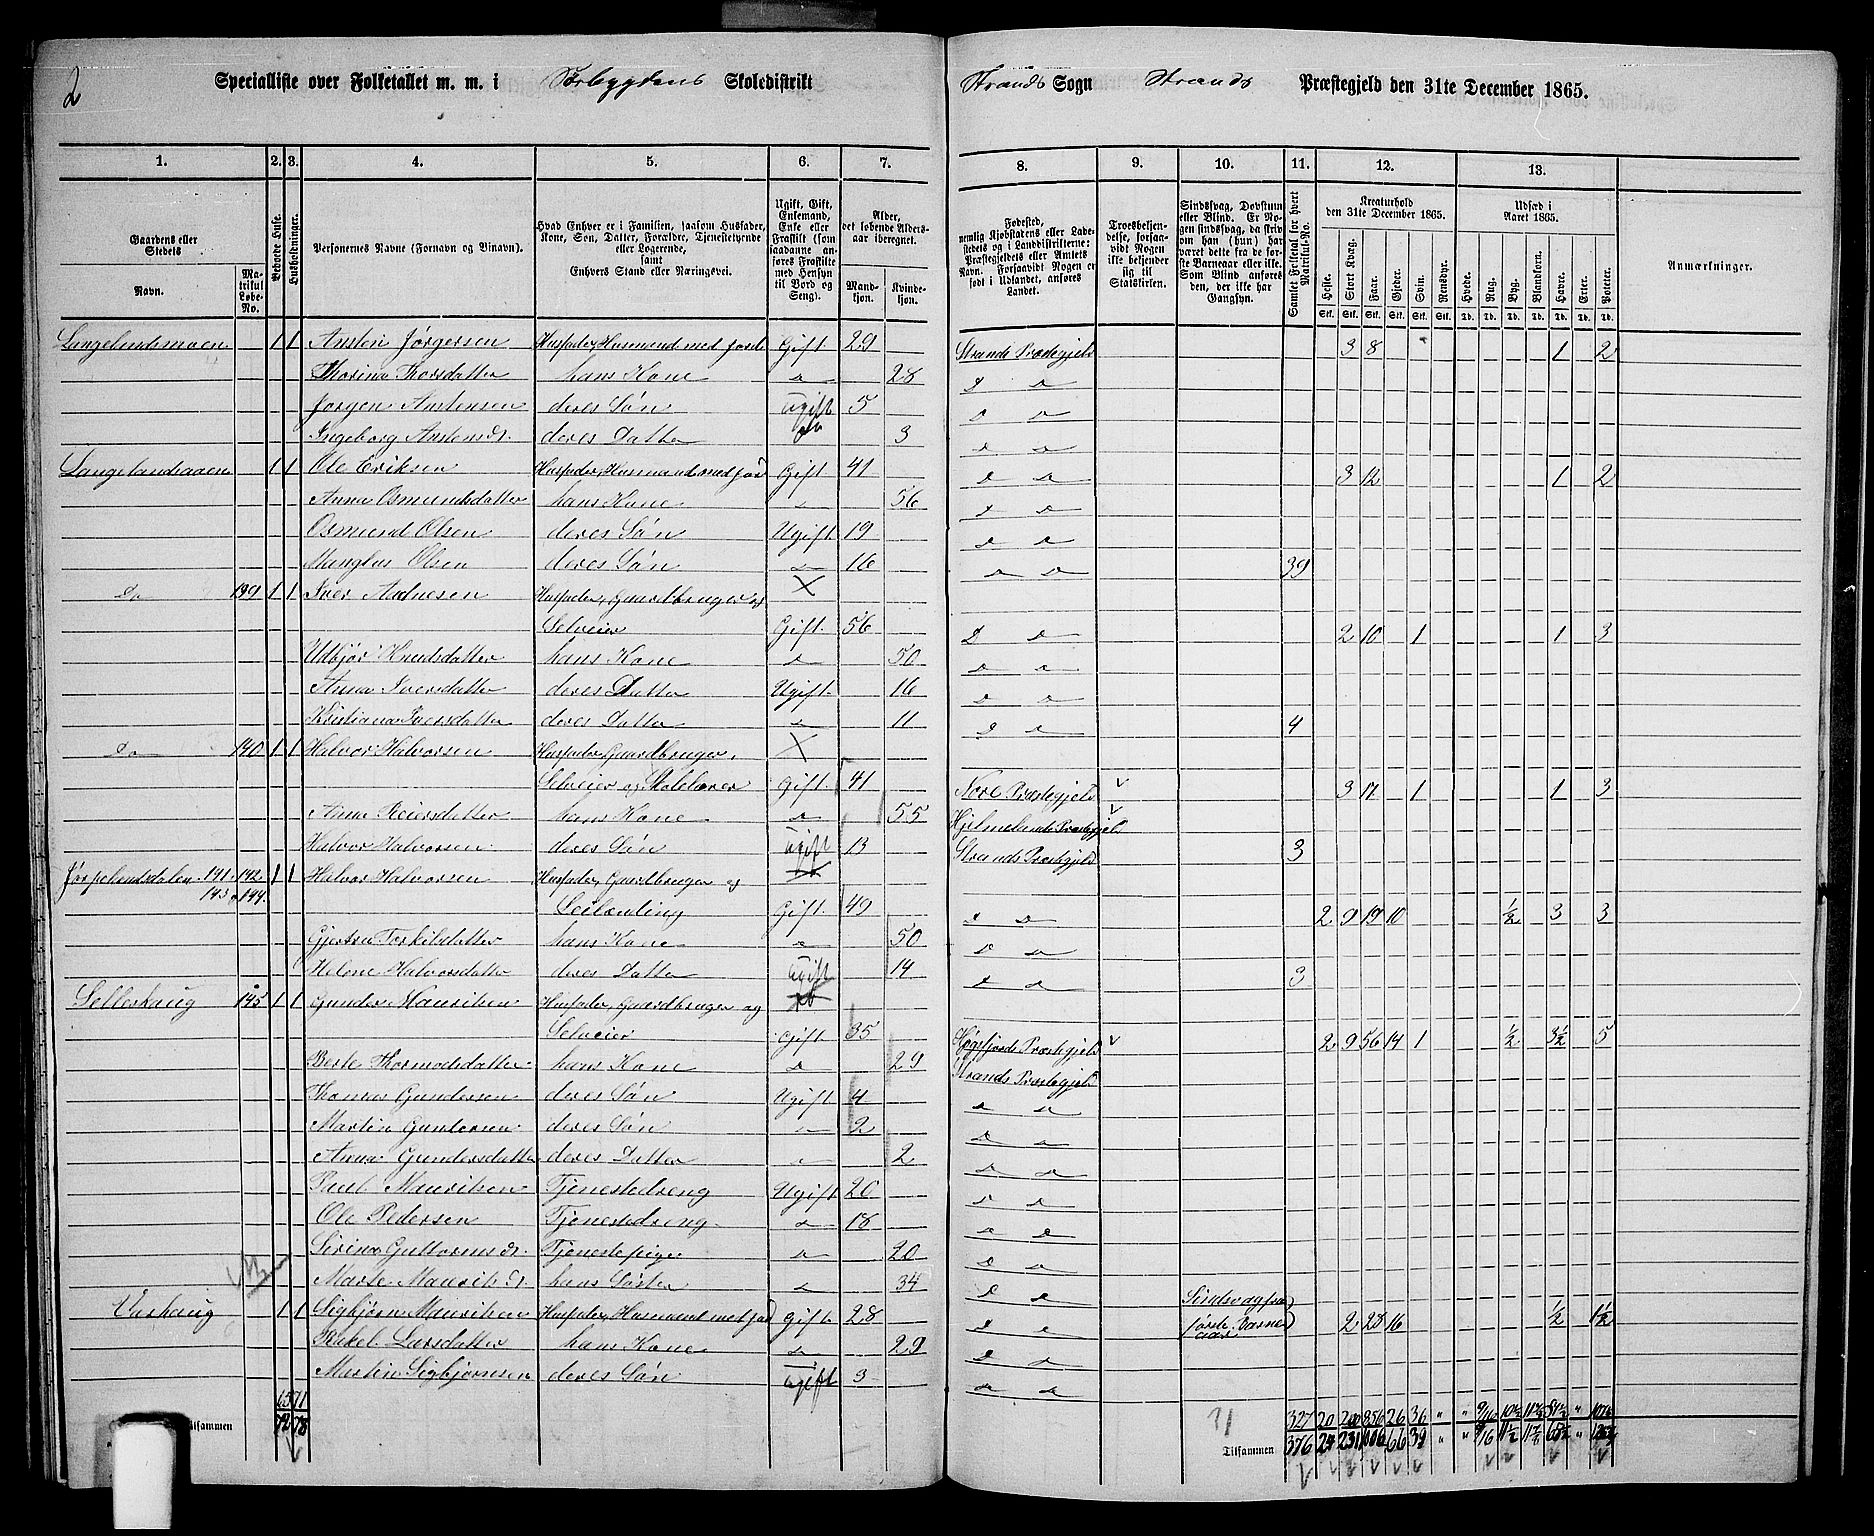 2
Specialliste over Folketallet m. m. i Skoledistrikt Strands Sogn Strands Præstegjeld den 31te December 1865.
1. 2. 3. 4. 5. 6. 7. 8. 9. 10. 11. 12. 13.
Gaardens eller Stedets
Navn. Matrikul Løbe-No.
Beboede Huse.
Husholdninger.
Personernes Navne (Fornavn og Vinavn).
Hvad Enhver er i Familien, saasom Husfader, Kone, Søn, Datter, Forældre, Tjenestetyende eller Logerende, samt Enhvers Stand eller Næringsvei.
Ugift, Gift, Enkemand, Enke eller Fraskilt (som saadanne anføres Fraskilte med Hensyn til Bord og Seng).
Alder, det løbende Aldersaar iberegnet.
Mandkjøn. Kvindekjøn.
Fødested, nemlig Kjøbstadens eller Ladestedets eller i Landdistrikterne: Præstegjeldets eller Amtets Navn. Forsaavidt Nogen er født i Udlandet, anføres Landet.
Troesbekjendelse, forsaavidt Nogen ikke bekjender sig til Statskirken.
Sindssvag, Døvstum eller Blind. Er Nogen sindssvag, da skrives om han (hun) har været dette fra de første Barneaar eller ikke. Som Blind anføres den, der ikke har Gangsyn.
Samlet Folketal for hvert Matrikul-No.
Kreaturhold den 31te December 1865.
Heste. Stort Kvæg. Faar. Gjeder. Svin. Rensdyr.
Udsæd i Aaret 1865.
Hvede. Rug. Byg. Blandkorn. Havre. Erter. Poteter.
Anmærkninger.
Langelandsmoen 1 1 Ansten Jørgensen Husfader, Husmand med Jord Gift 29 Strands Præstegjeld 3 8 1 2
Thorina Thorsdatter hans Kone do 28 D o
Jørgen Anstensen deres Søn ugift 5 D o
Ingeborg Anstensd. deres Datter do 3 D o
1 1 Ole Eriksen Husfader, Husmand med Jord Gift 41 D o 3 12 1 2
Anna Osmundsdatter hans Kone do 56 D o
Osmund Olsen deres Søn Ugift 19 D o
Olsen deres Søn do 16 D o 39
Do 139 1 1 Iver Husfader, Gaardbruger og X
Selveier Gift 56 D o 2 10 1 1 3
Knudsdatter hans Kone do 50 D o
Anna Iversdatter deres Datter Ugift 16 D o
Kristiana Iversdatter deres Datter do 11 D o 4
Do 140 1 1 Halvor Halvorsen Husfader, Gaardbruger, X
Selveier og Skolelærer Gift 41 Præstegjeld v 3 11 1 1 3
Anna Reiersdatter hans Kone do 55 Hjelmelands Præstegjeld v
Halvor Halvorsen deres Søn ugift 13 Strands Præstegjeld 3
Jørpelandsdalen 141 142 1 1 Halvor Halvorsen Husfader, Gaardbruger og
143 144 Leilænding Gift 49 D o 2 9 19 10 ½ 3 3
Torkilsdatter hans Kone do 50 D o
Helene Halvorsdatter deres Datter ugift 14 D o 3
Selleskaug 145 1 1 Gunder Mauritsen Husfader, Gaardbruger og
Selveier Gift 35 Høgsfjords Præstegjeld v 2 9 56 14 1 ½ 3½ 5
Berte Thormodsdatter hans Kone do 29 Strands Præstegjeld
Thomas Gundersen deres Søn Ugift 4 D o
Martin Gundersen deres Søn do 2 D o
Anna Gundersdatter deres Datter do 2 D o
Mauritsen Tjenestedreng Ugift D o
Ole Pedersen Tjenestedreng do 18 D o
Sirina Guttormsd. Tjenestepige do 20 D o
Marte Mauritsd. hans Søster do 34 D o
Vashaug 1 1 Sigbjørn Mauritsen Husfader, Husmand med Jord Gift 28 D o 2 16 ½ 1½
Rakel Larsdatter hans Kone do 29 D o
Martin Sigbjørnsen deres Søn ugift 3 D o
Tilsammen 72 78
327 20 856 26 36
Tilsammen 376 24 231 66 39